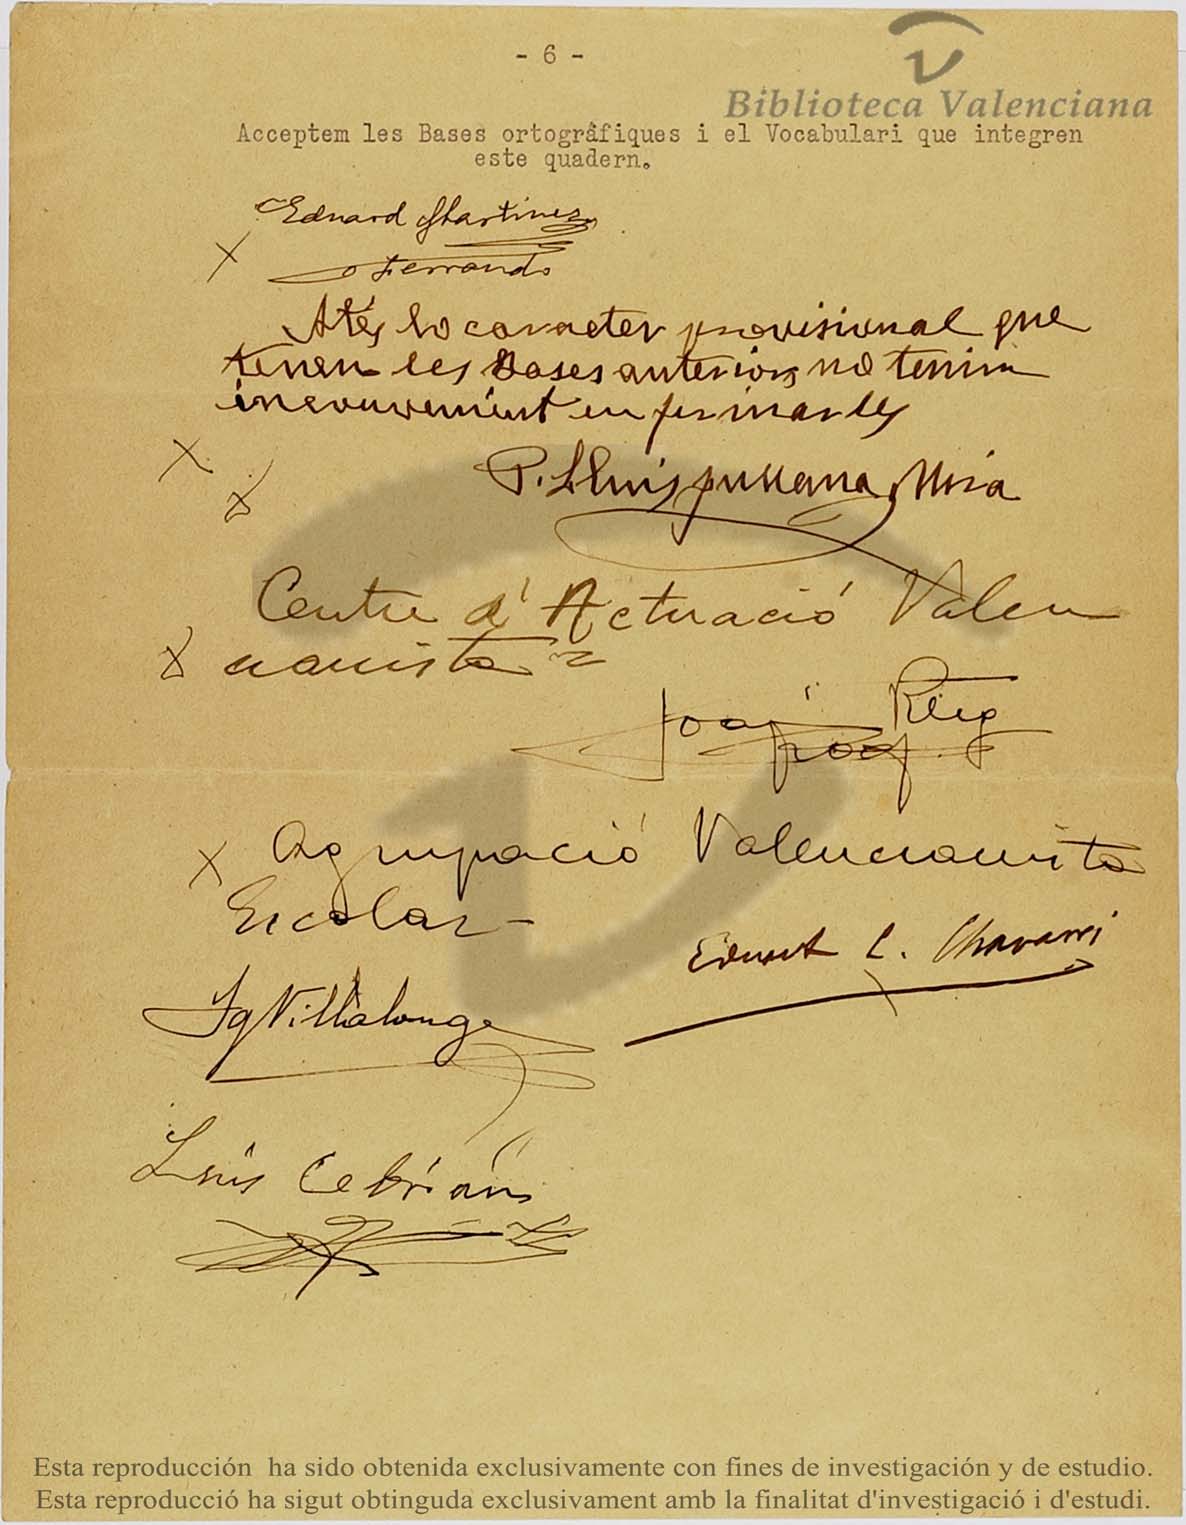 - 6 -
Biblioteca Valenciana
Acceptem les Bases ortogràfiques i el Vocabulari que integren
este quadern.
Eduard Martinez
Ferrando
Atés lo caracter provisional que
tenen les Bases anteriors no tenim
inconvenient en firmarles
P. Lluis Fullana Mira
Centre d'Actuació Valen
cianista
Joaq Reig
Agrupació Valencianista
Escolar
Eduart L. Chavarri
Ig Villalonga
Luis Cebrián
Esta reproducción ha sido obtenida exclusivamente con fines de investigación y de estudio.
Esta reproducció ha sigut obtinguda exclusivament amb la finalitat d'investigació i d'estudi.